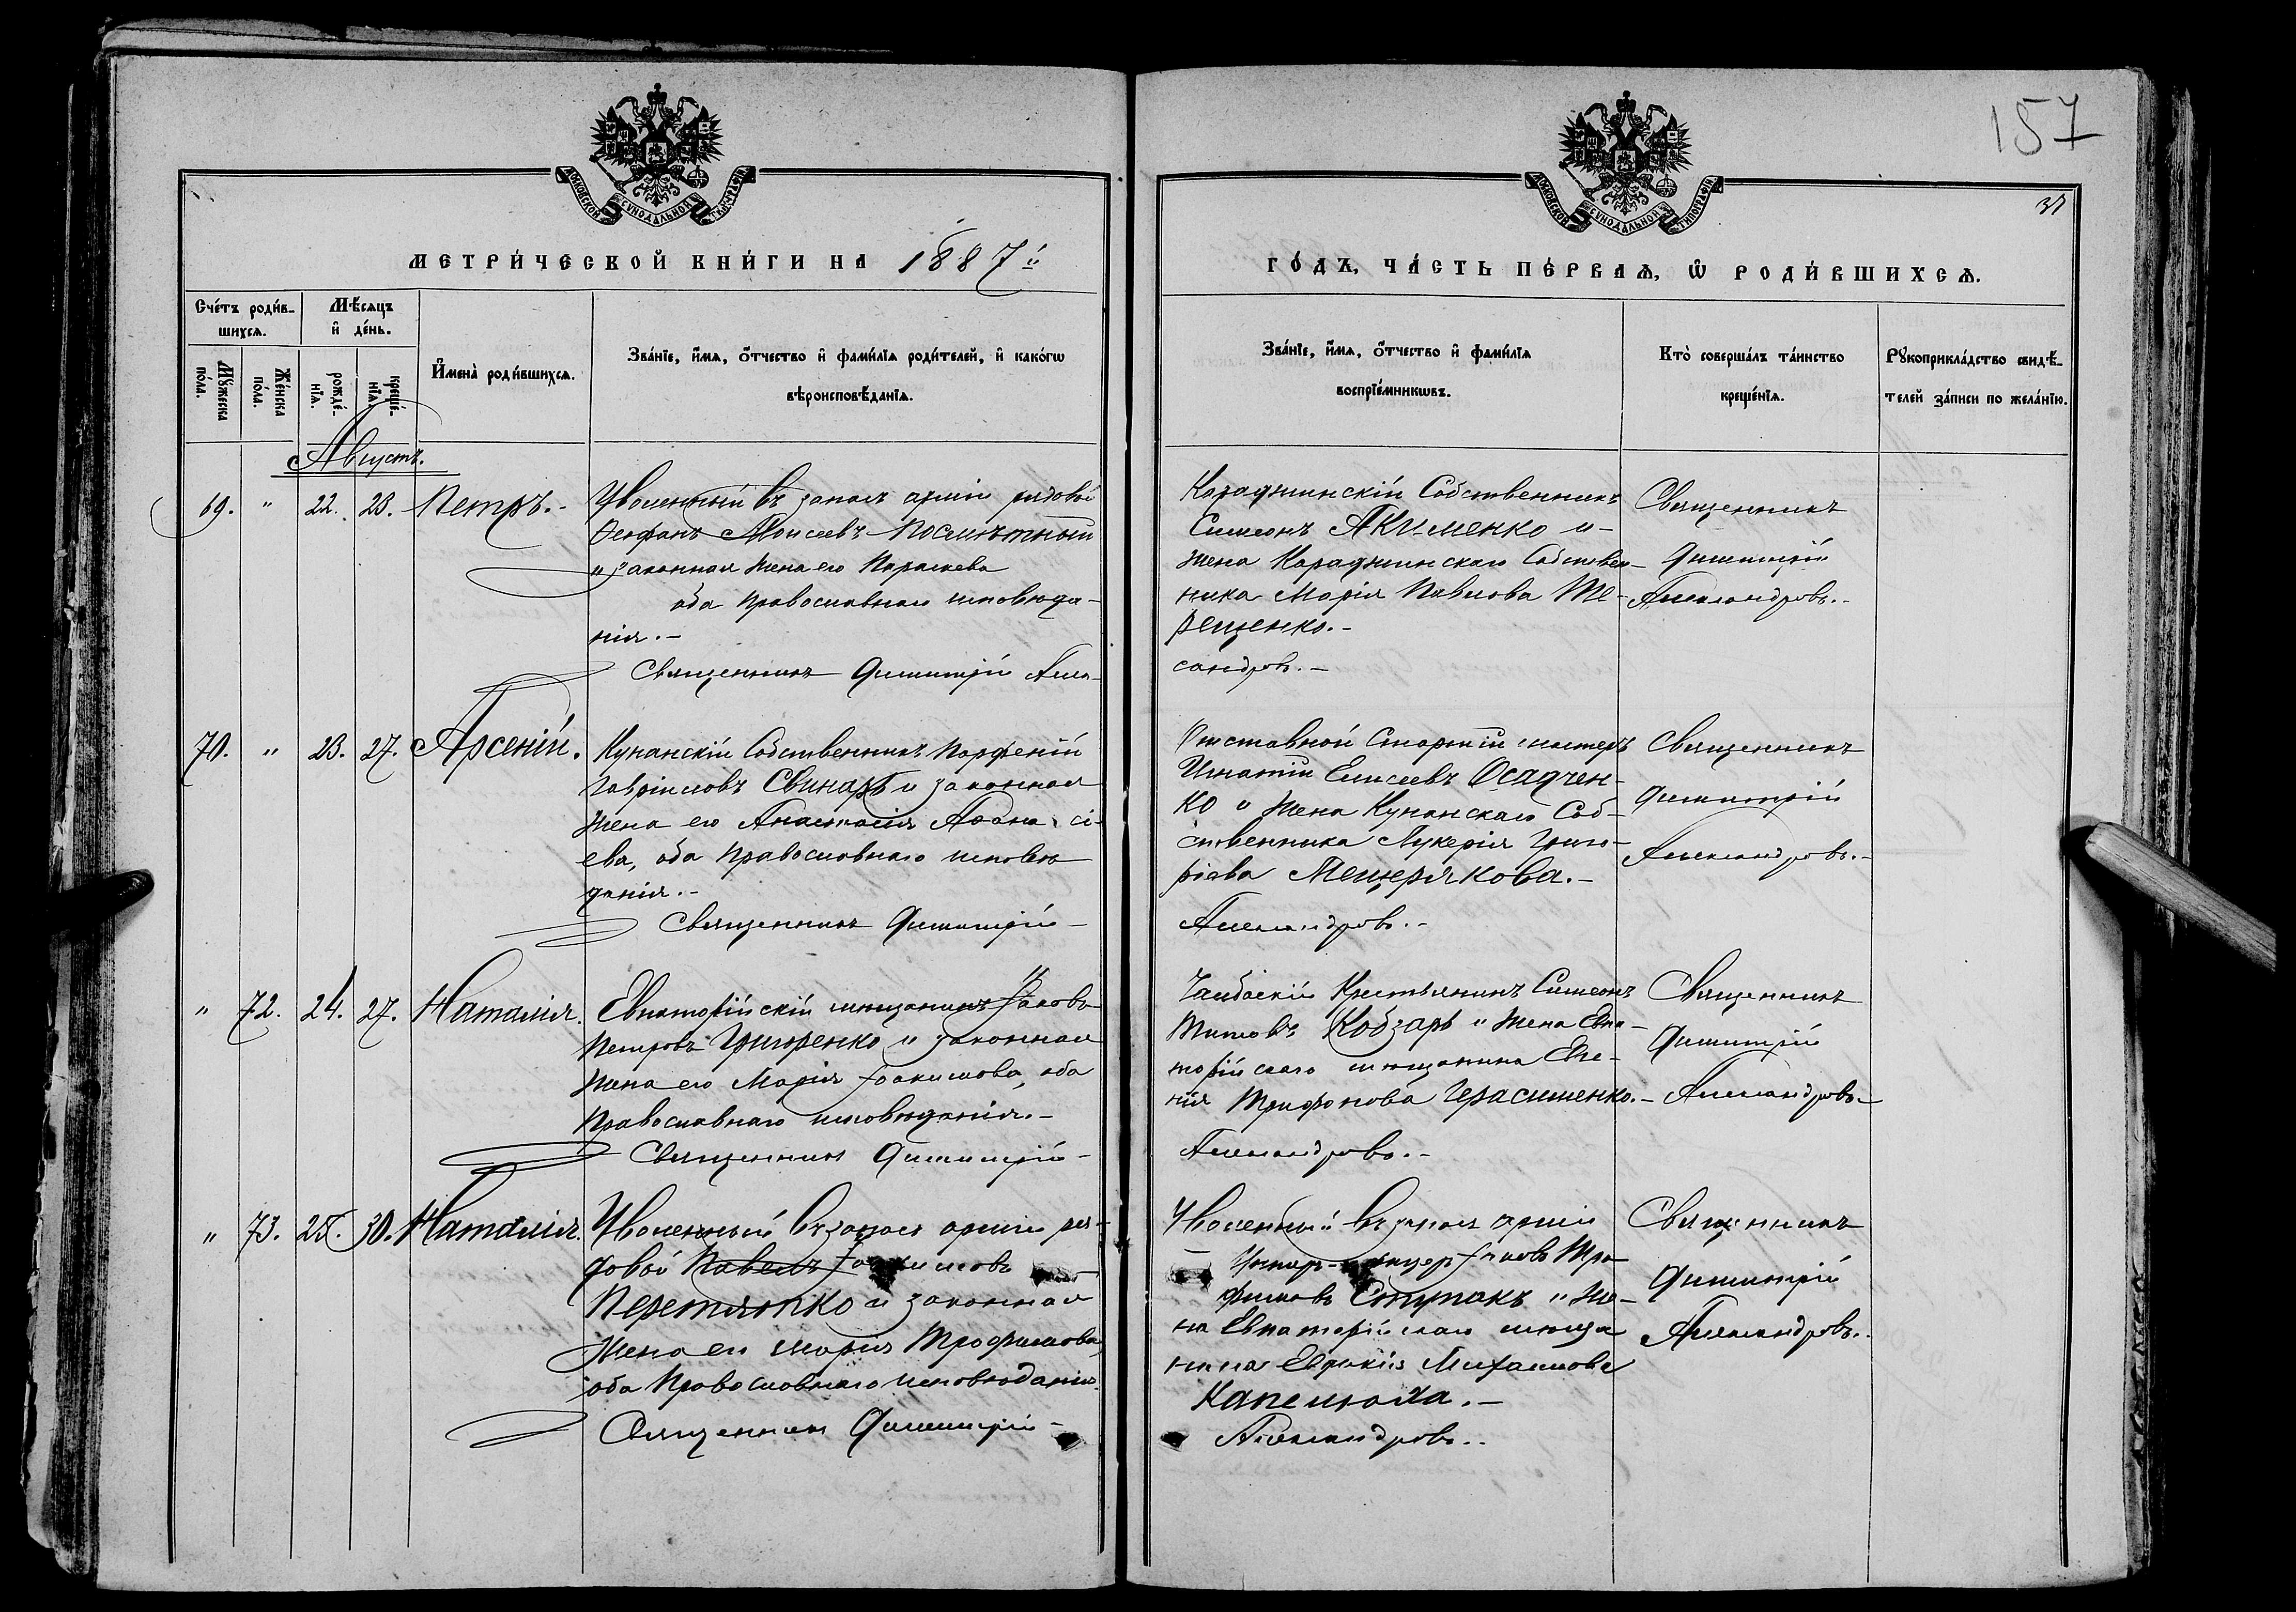 157
31
МОСКОВСКОЙ СѴНОДАЛЬНОЙ ТИПОГРАФІИ.
МОСКОВСКОЙ СѴНОДАЛЬНОЙ ТИПОГРАФІИ.
МЕТРИ́ЧЕСКОЙ КНИ́ГИ НА 1887й
ГО́ДЪ, ЧА́СТЬ ПЕ́РВАѦ, Ѡ҆ РОДИ́ВШИХСѦ.
Сче́тъ роди́в-
шихсѧ.
Мѣ́сѧцъ
и҆ де́нь.
Мꙋ́жеска
по́ла.
Же́нска
по́ла.
рожде́-
нїѧ.
креще́-
нїѧ.
И҆мена̀ роди́вшихсѧ.
Зва́нїе, и҆́мѧ, ѻ҆́тчество и҆ фами́лїѧ роди́телей, и҆ како́гѡ
вѣроисповѣ́данїѧ.
Зва́нїе, и҆́мѧ, ѻ҆́тчество и҆ фами́лїѧ
воспрїе́мникѡвъ.
Кто̀ соверша́лъ та́инство
креще́нїѧ.
Рꙋкоприкла́дство свидѣ́-
телей за́писи по жела́нїю.
Августъ.
69. " 22. 23. Петръ.-
Уволенный въ запасъ арміи рядовой
Ѳеофанъ Моисеевъ Посмѣтный
и законная жена его Параскева
оба православнаго исповѣда-
нія.-
Священникъ Димитрій Алек-
Караджинскій Собственникъ
Симеонъ Акименко и-
жена Караджинскаго Собствен-
ника Марія Павлова Те-
рещенко.-
сандровъ.-
Священникъ
Димитрій
Александровъ.-
70. " 23. 27. Арсеній.
Кунанскій Собственникъ Парфеній
Гавріиловъ Свинарь и законная
жена его Анастасія Аѳанасі-
ева, оба православнаго исповѣ-
данія.-
Священникъ Димитрій-
Отставной Старшій мастеръ
Игнатій Елисеевъ Осадчен-
ко и жена Кунанскаго Соб-
ственника Лукерія Григо-
ріева Мещерякова.-
Александровъ.-
Священникъ
Димитрій
Александровъ.-
" 72. 24. 27. Наталія.
Евпаторійскій мѣщанинъ Іаковъ
Петровъ Григоренко и законная
жена его Марія Іоакимова, оба
Православнаго исповѣданія.-
Священникъ Димитрій-
Крестьянинъ Симеонъ
Титовъ Кобзарь и жена Евпа-
торійскаго мѣщанина Евге-
нія Трифонова Герасименко.-
Александровъ.-
Священникъ
Димитрій
Александровъ-
" 73. 25. 30. Наталія.
Уволенный въ запасъ арміи ря-
довой Павелъ Іоакимовъ
Перетятко и законная
жена его Марія Трофимова,
оба Православнаго исповѣданія.
Священникъ Димитрій-
Уволенный въ запасъ арміи
Унтеръ-офицеръ Іаковъ Тро-
фимовъ Ступакъ и же-
на Евпаторійскаго мѣща
нина Евдокія Михаилова
Капелюха.-
Александровъ..
Священникъ
Димитрій
Александровъ.